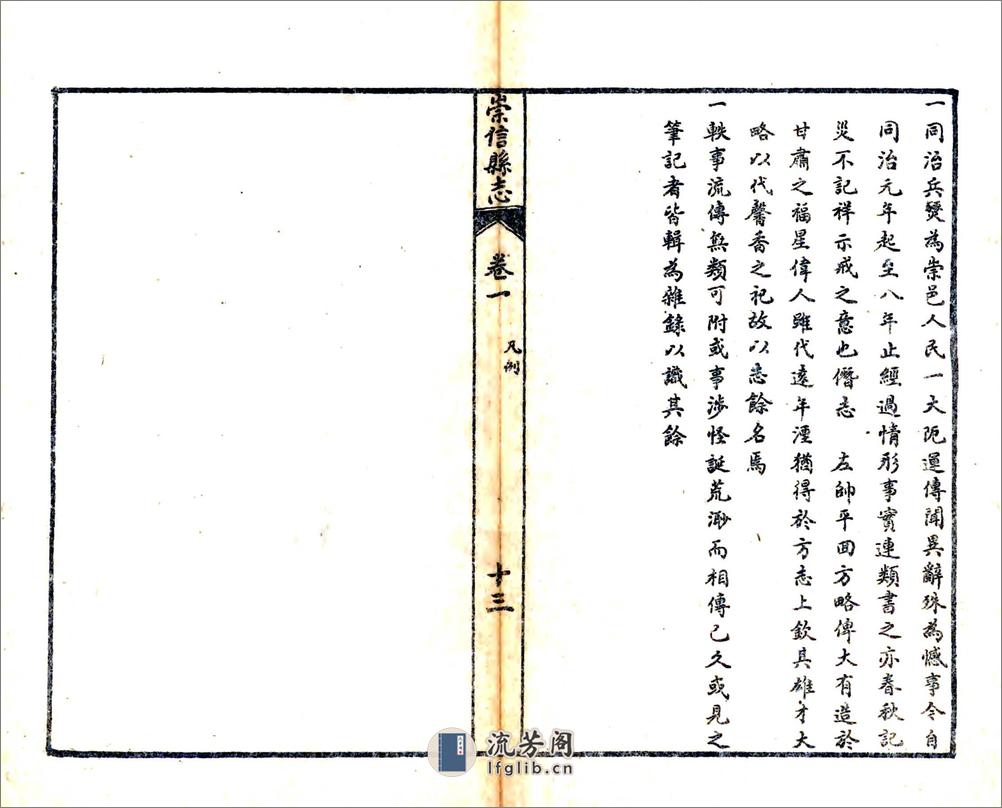 一同治兵燹為崇邑人民一大阨運傳聞異辭殊為憾事今自
同治元年起至八年止經過情形事實連類書之亦春秋記
災不記祥示戒之意也僭志　左帥平回方略俾大有造於
甘肅之福星偉人雖代遠年湮猶得於方志上欽其雄才大
略以代馨香之祀故以志餘名焉
一軼事流傳無類可附或事涉怪誕荒渺而相傳已久或見之
筆記者皆輯為雜錄以識其餘
崇信縣志
卷一
凡例
十三
流芳阁
lfglib.cn